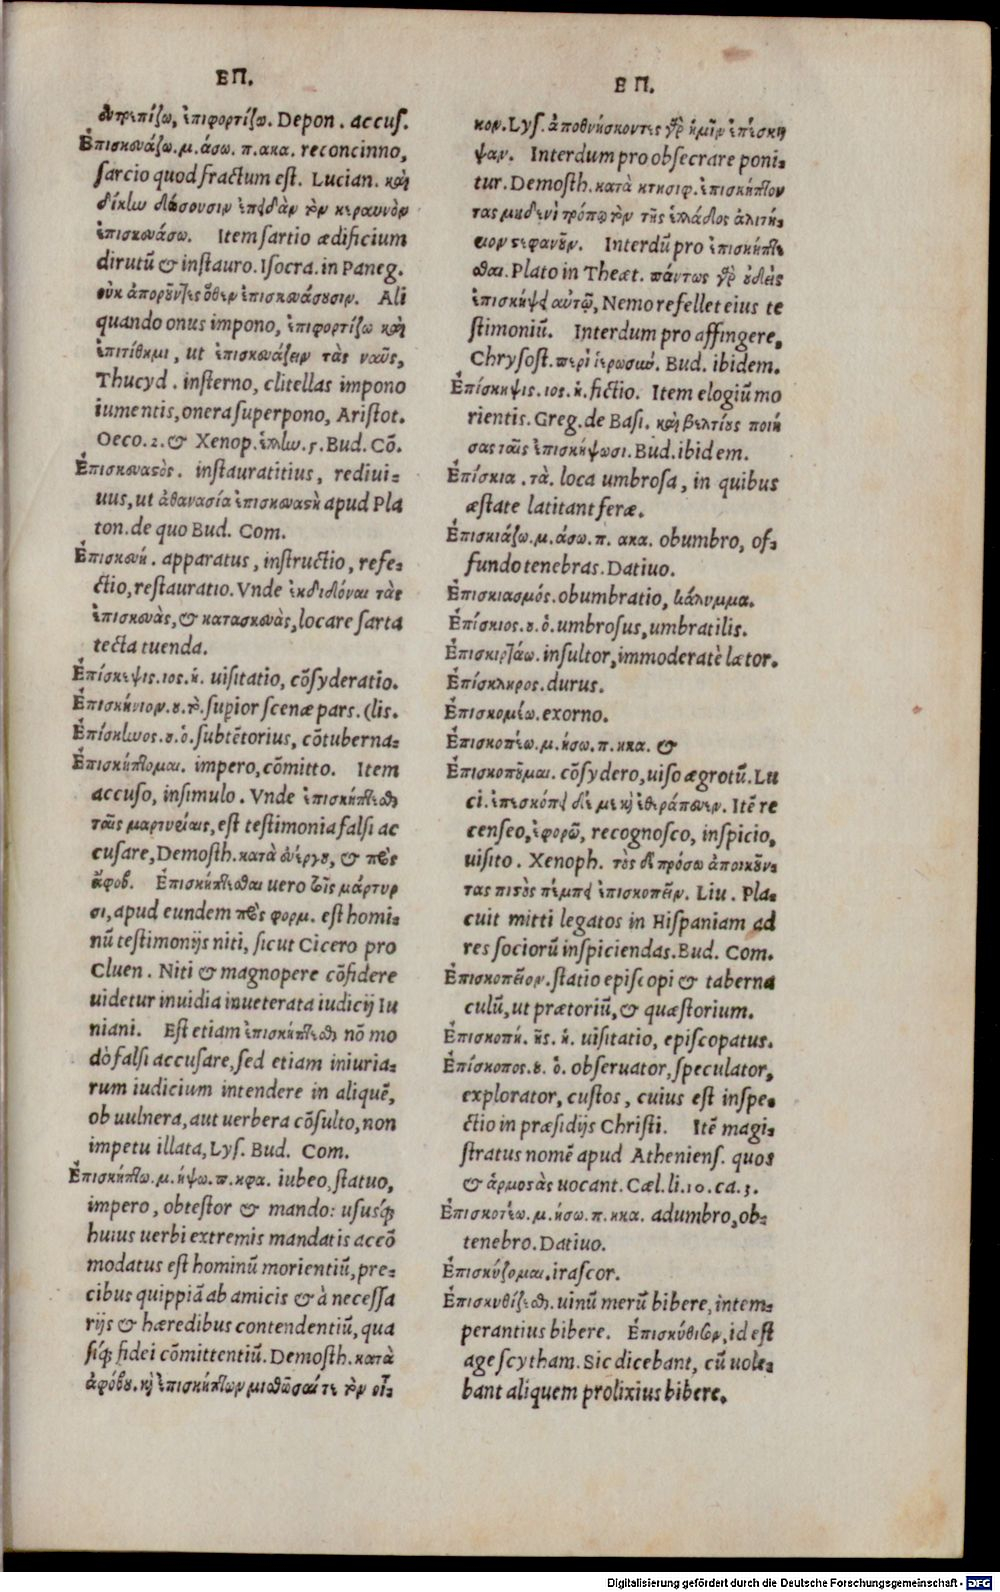 ΕΠ.
εὐτρεπίζω, ἐπιφορτίζω. Depon. accuſ.
Ἐπισκευάζω. μ. άσω. π. ακα. reconcinno,
ſarcio quod fractum eſt. Lucian. καὶ
δίκην δώσουσιν ἐπειδὰν τὸν κεραυνὸν
ἐπισκευάσω. Item ſartio ædificium
dirutũ & inſtauro. Iſocra. in Paneg.
οὐκ ἀποροῦντες ὅθεν ἐπισκευάσουσιν. Ali
quando onus impono, ἐπιφορτίζω καὶ
ἐπιτίθημι, ut ἐπισκευάζειν τὰς ναῦς,
Thucyd. inſterno, clitellas impono
iumentis, onera ſuperpono, Ariſtot.
Oeco. 2. & Xenop. ἑλλην. 5. Bud. Cõ.
Ἐπισκευαστὸς. inſtauratitius, rediui-
uus, ut ἀθανασία ἐπισκευαστὴ apud Pla
ton. de quo Bud. Com.
Ἐπισκευή. apparatus, inſtructio, refe-
ctio, reſtauratio. Vnde ἐκδιδόναι τὰς
ἐπισκευὰς, & κατασκευὰς, locare ſarta
tecta tuenda.
Ἐπίσκεψις. ιος. ἡ. uiſitatio, cõſyderatio.
Ἐπισκήνιον. ου. τὸ. ſupior ſcenæ pars. (lis.
Ἐπίσκηνος. ου. ὁ. ſubtẽtorius, cõtuberna-
Ἐπισκήπτομαι. impero, cõmitto. Item
accuſo, inſimulo. Vnde ἐπισκήπτεσθαι
ταῖς μαρτυρίαις, eſt teſtimonia falſi ac
cuſare, Demoſth. κατὰ εὐέργου, & πρὸς
ἄφοβ. Ἐπισκήπτεσθαι uero τοῖς μάρτυρ
σι, apud eundem πρὸς φορμ. eſt homi-
nũ teſtimonijs niti, ſicut Cicero pro
Cluen. Niti & magnopere cõfidere
uidetur inuidia inueterata iudicij Iu
niani. Eſt etiam ἐπισκήπτεσθαι nõ mo
dò falſi accuſare, ſed etiam iniuria-
rum iudicium intendere in aliquẽ,
ob uulnera, aut uerbera cõſulto, non
impetu illata, Lyſ. Bud. Com.
Ἐπισκήπτω. μ. ήψω. π. ηφα. iubeo, ſtatuo,
impero, obteſtor & mando: uſusq́;
huius uerbi extremis mandatis accõ
modatus eſt hominũ morientiũ, pre-
cibus quippiã ab amicis & à neceſſa
rijs & hæredibus contendentiũ, qua
ſiq́; fidei cõmittentiũ. Demoſth. κατὰ
ἀφόβου. καὶ ἐπισκήπτων μισθῶσαί τε τὸν οἶ-
ΕΠ.
κον. Lyſ. ἀποθνήσκοντες γὰρ ἡμῖν ἐπέσκη
ψαν. Interdum pro obſecrare poni-
tur. Demoſth. κατὰ κτησιφ. ἐπισκήπτον
τας μηδενὶ τρόπῳ τὸν τῆς ἑλλάδος ἀλιτή-
ριον στεφανοῦν. Interdũ pro ἐπισκήπτε
σθαι. Plato in Theæt. πάντως γὰρ οὐδεὶς
ἐπισκήψει αὐτῷ, Nemo refellet eius te
ſtimoniũ. Interdum pro affingere,
Chryſoſt. περὶ ἱερωσυν. Bud. ibidem.
Ἐπίσκηψις. ιος. ἡ. fictio. Item elogiũ mo
rientis. Greg. de Baſi. καὶ βελτίους ποιή
σας ταῖς ἐπισκήψεσι. Bud. ibidem.
Ἐπίσκια. τὰ. loca umbroſa, in quibus
æſtate latitant feræ.
Ἐπισκιάζω. μ. άσω. π. ακα. obumbro, of-
fundo tenebras. Datiuo.
Ἐπισκιασμός. obumbratio, κάλυμμα.
Ἐπίσκιος. ου. ὁ. umbroſus, umbratilis.
Ἐπισκιρτάω. inſultor, immoderatè lætor.
Ἐπίσκληρος. durus.
Ἐπισκομέω. exorno.
Ἐπισκοπέω. μ. ήσω. π. ηκα. &
Ἐπισκοποῦμαι. cõſydero, uiſo ægrotũ. Lu
ci. ἐπεσκόπει δέ με καὶ ἐθεράπευεν. Itẽ re
cenſeo, ἐφορῶ, recognoſco, inſpicio,
uiſito. Xenoph. τοὺς δὲ πρόσω ἀποικοῦν-
τας πιστοὺς πέμπει ἐπισκοπεῖν. Liu. Pla-
cuit mitti legatos in Hiſpaniam ad
res ſociorũ inſpiciendas. Bud. Com.
Ἐπισκοπεῖον. ſtatio epiſcopi & taberna
culũ, ut prætoriũ, & quæſtorium.
Ἐπισκοπή. ῆς. ἡ. uiſitatio, epiſcopatus.
Ἐπίσκοπος. ου. ὁ. obſeruator, ſpeculator,
explorator, cuſtos, cuius eſt inſpe-
ctio in præſidijs Chriſti. Itẽ magi-
ſtratus nomẽ apud Athenienſ. quos
& ἁρμοστὰς uocant. Cæl. li. 10. ca. 3.
Ἐπισκοτέω. μ. ήσω. π. ηκα. adumbro, ob-
tenebro. Datiuo.
Ἐπισκύζομαι. iraſcor.
Ἐπισκυθίζεσθαι. uinũ merũ bibere, intem-
perantius bibere. Ἐπισκύθισον, id eſt
age ſcytham. Sic dicebant, cũ uole-
bant aliquem prolixius bibere.
Digitalisierung gefördert durch die Deutsche Forschungsgemeinschaft - DFG